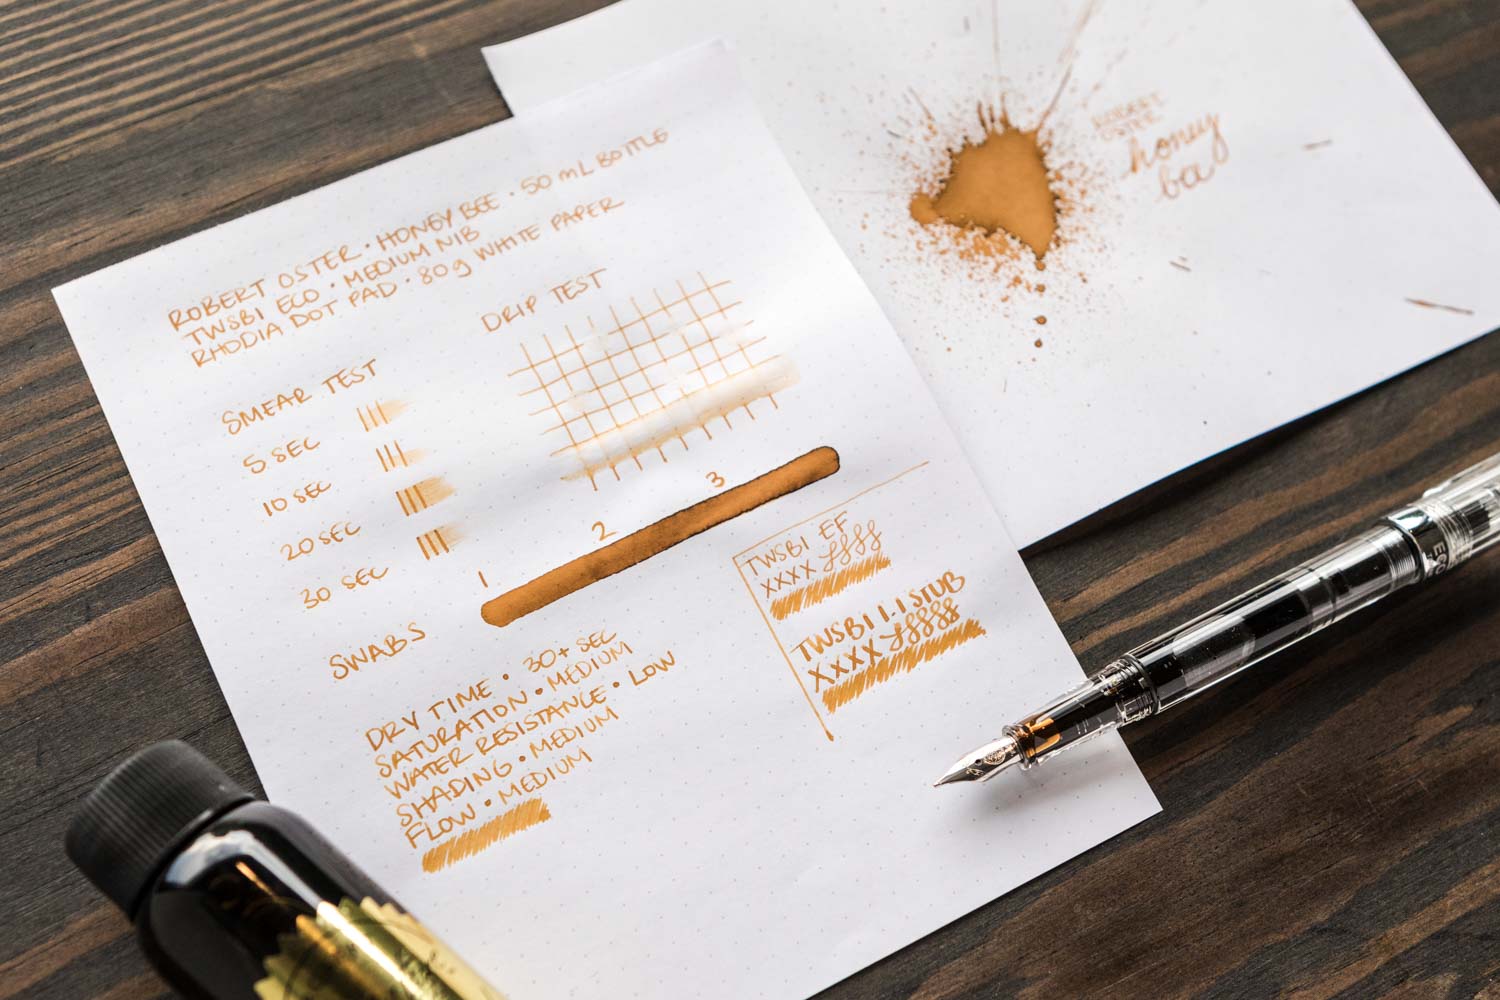 ROBERT OSTER • HONEY BEE • 50 mL BOTTLE
TWSBI ECO • MEDIUM NIB
RHODIA DOT PAD • 80g WHITE PAPER
SMEAR TEST
5 SEC
10 SEC
20 SEC
30 SEC
DRIP TEST
SWABS
1
2
3
DRY TIME • 30+ SEC
SATURATION • MEDIUM
WATER RESISTANCE • LOW
SHADING • MEDIUM
FLOW • MEDIUM
TWSBI EF
XXXX
TWSBI 1.1 STUB
XXXX
ROBERT
OSTER
honey
bee